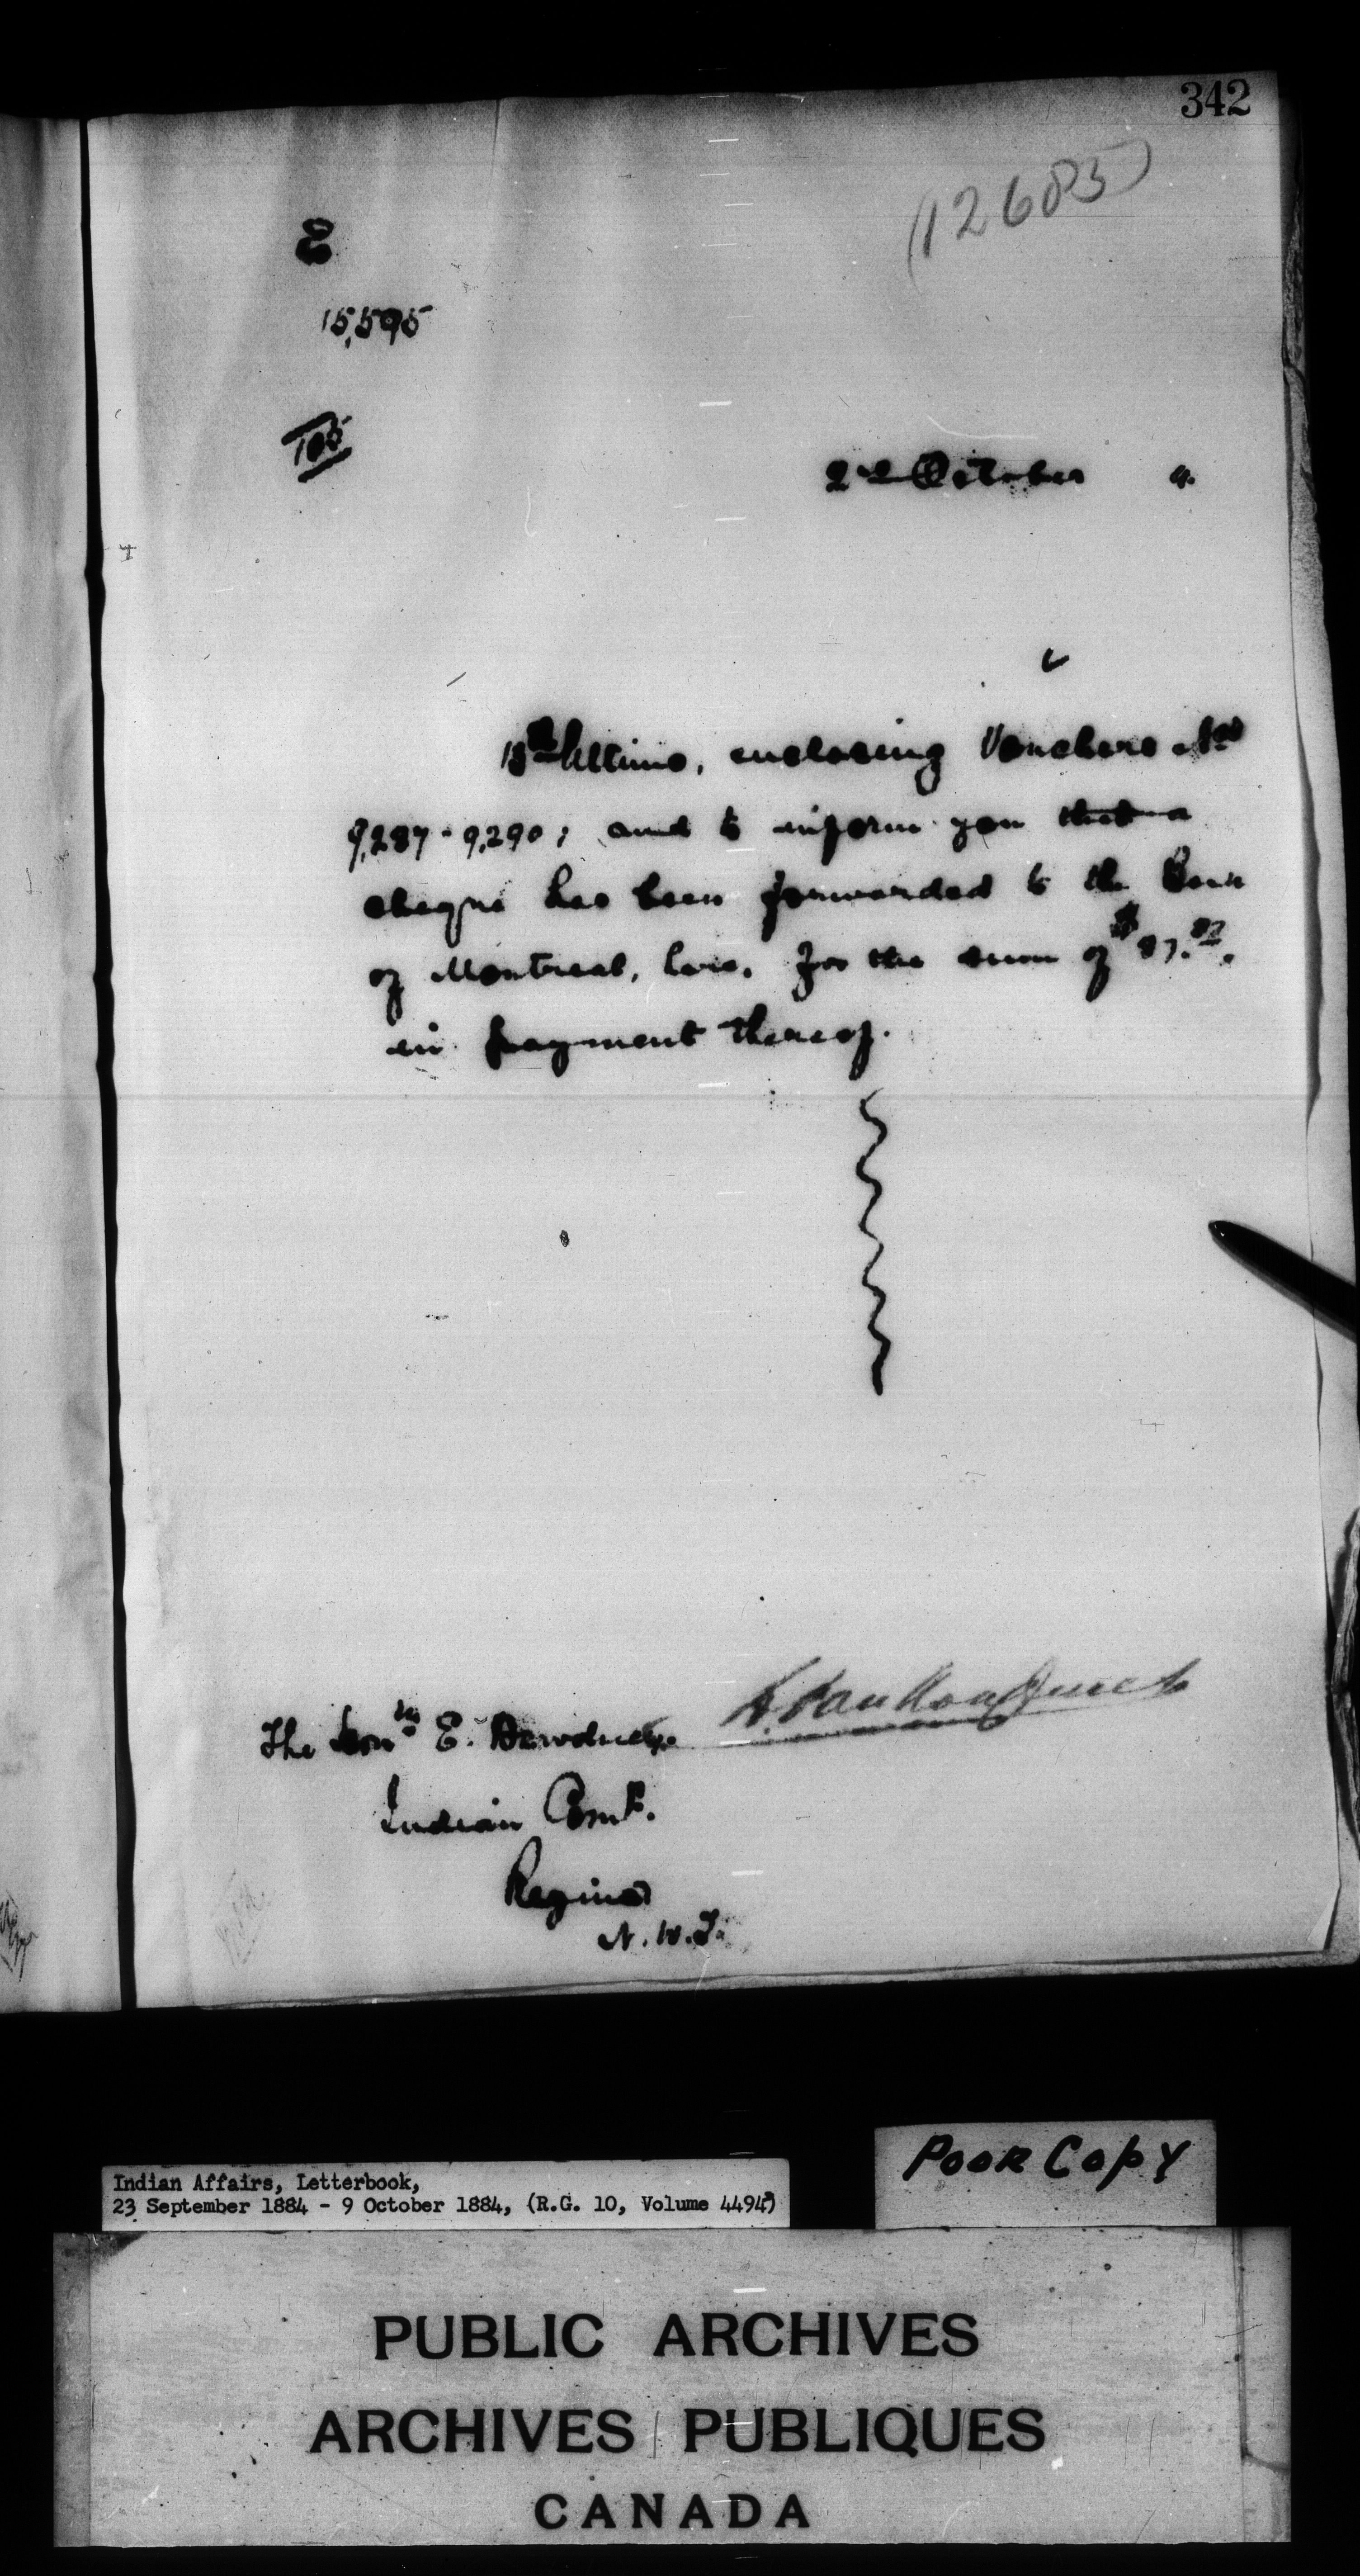 342
(12685)
E
15,595
105
2nd October 4.
18th Ultimo, enclosing Vouchers Nos
9,287-9,290; and to inform you that a
cheque has been forwarded to the Bank
of Montreal, here, for the sum of $87.87.
in payment thereof.
L. VanKoughnet
The Honble E. Dewdney.
Indian Comr.
Regina
N.W.T.
Poor Copy
Indian Affairs, Letterbook,
23 September 1884 - 9 October 1884, (R.G. 10, Volume 4494)
PUBLIC ARCHIVES
ARCHIVES PUBLIQUES
CANADA